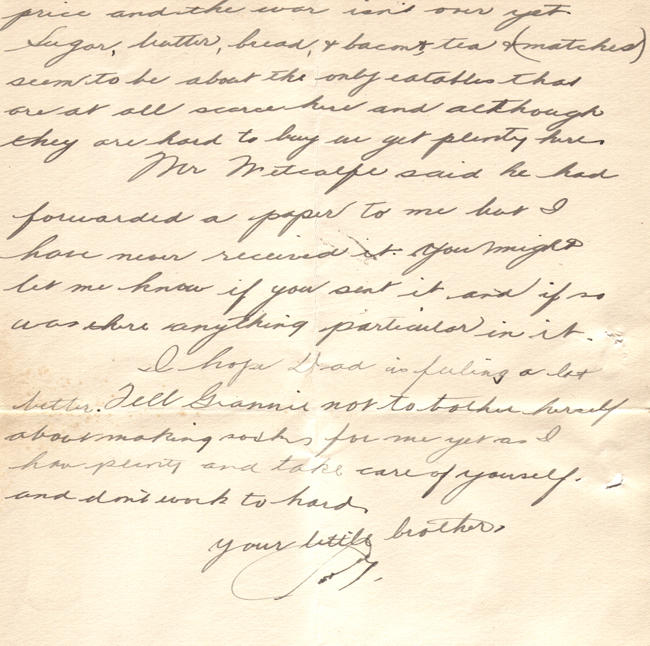 price and the war isn't over yet
Sugar, butter, bread, & bacon, tea & (matches)
seem to be about the only eatables that
are at all scarce here and although
they are hard to buy we get plenty here.
Mr Metcalfe said he had
forwarded a paper to me but I
have never received it. You might
let me know if you sent it and if so
was there anything particular in it.
I hope Dad is feeling a lot
better. Tell Grannie not to bother herself
about making socks for me yet as I
hav plenty and take care of yourself.
and don't work to hard
your little brother.